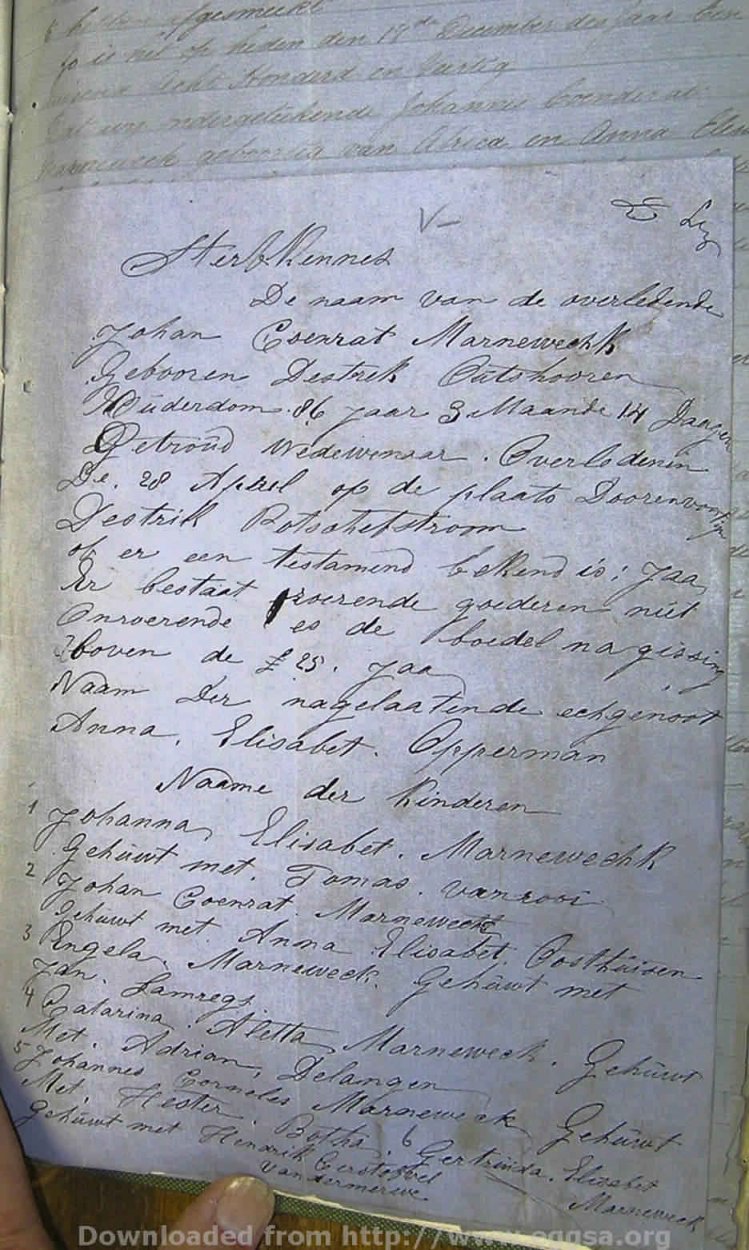 so is het op heden den 18de December des Jaar Een
duisend Acht Honderd en Veertig
Dat wij ondergetekende Johannes Coenderat
Marneweck geboortig van Africa en Anna Elisa
Sterf Kennes
De naam van de overledende
Johan Coenrat Marnewechk
Gebooren Destrek Outshooren
Oüderdom. 86 jaar 3 Maande 14 Daagen
Getroüd Wedewenaar. Overledenen
De. 28 April op de plaats Doorenvontyn
Destrik Potschefstroom
of er een testamend bekend is; Jaa
Er bestaat roerende goederen niet
Onroerende es de boedel na gissing
boven de £ 25. Jaa
Naam Der nagelaatende echgenoot
Anna. Elisabet. Opperman
Naame der Kinderen
1 Johanna, Elisabet. Marnewechk
Gehüwt met. Tomas. vanrooi
2 Johan Coenrat. Marneweck
Gehüwt met Anna Elisabet. Oosthüisen
3 Engela. Marneweck. Gehüwt met
Jan. Lamregs
4 Catarina. Aletta Marneweck. Gehüwt
Met. Adrian, Delangen
5 Johannes Corneles Marneweck Gehüwt
Met. Hester. Botha. 6 Gertruida. Elisabet
Marneweck
Gehüwt met Hendrik Cerstoffel
Vandermerwe
Downloaded from http://www.eggsa.org